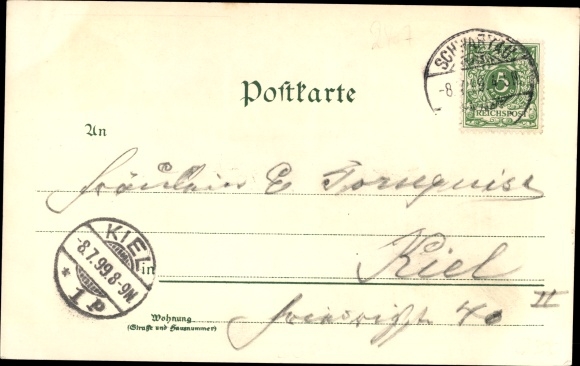 SCHWARTAU
-8
5
REICHSPOST
Postkarte
An
Fräulein E Tornquist
KIEL
-8.7.99.8-9N
* 1P
in
Kiel
Wohnung
(Straße und Hausnummer)
40 II